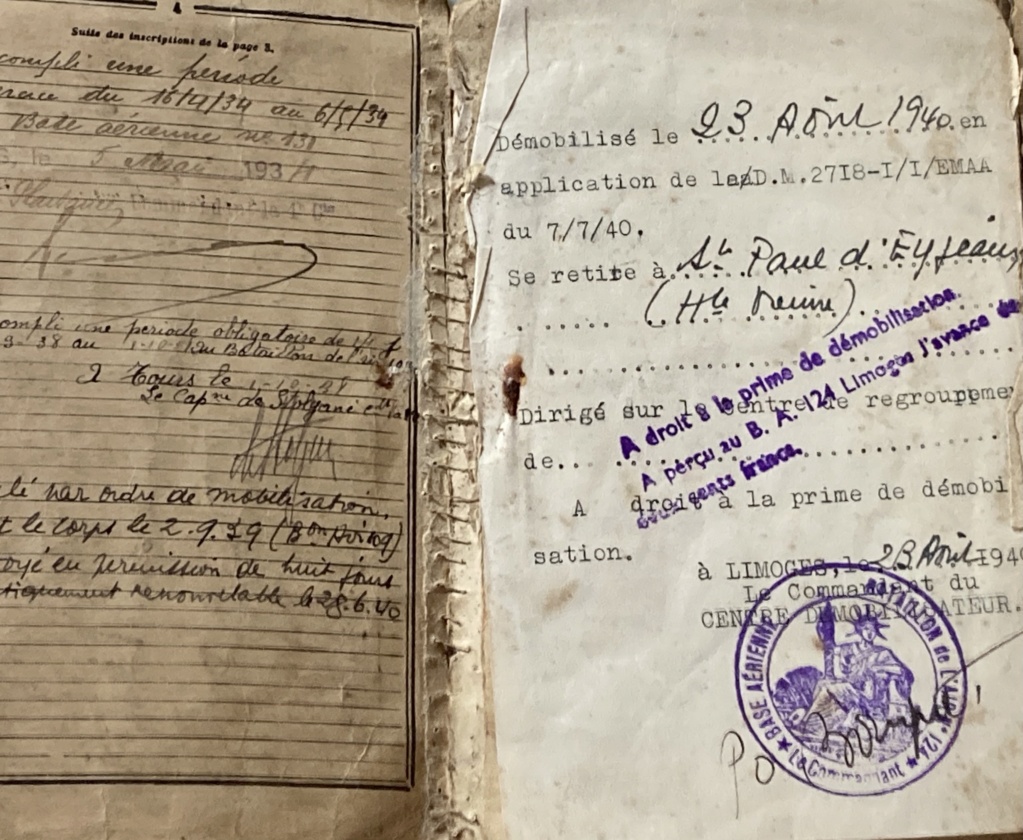 4
Suite des inscriptions de la page 3.
compli une période
du 16/4/34 au 6/5/34
Base aérienne no 131
le 5 Mai 1934
compli une période obligatoire de
9-38 au 1-10- du Bataillon de l'air
Tours le 1-10-38
Le Capne de
lé par ordre de mobilisation,
t le corps le 2.9.39 (Bon
oyé en permission de huit jours
tiquement renouvelable le 28.6.40
Démobilisé le 23 Août 1940 en
application de la D.M.2718-I/I/EMAA
du 7/7/40.
Se retire à St Paul d'Eyjeaux
(Hte Vienne)
Dirigé sur le Centre de regroupeme
de...
A droit à la prime de démobi
sation.
A droit à la prime de démobilisation.
A perçu au B. A. 124 Limoges l'avance de
cents francs.
à LIMOGES, le 23 Août 1940
Le Commandant du
CENTRE DEMOBILISATEUR.
BASE AÉRIENNE BATAILLON de L'AIR No 124
Le Commandant
Po